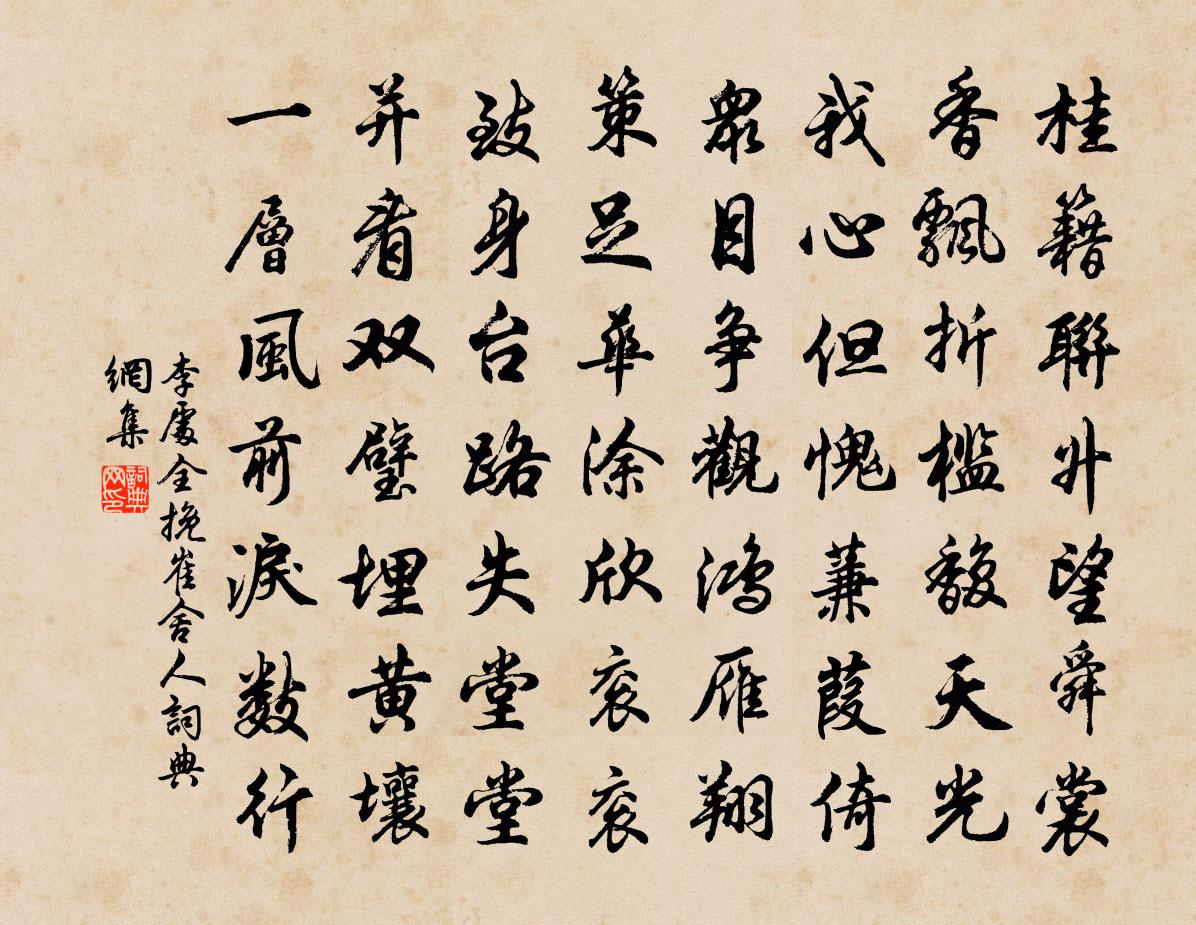 桂籍聯升望舜裳
香飄折檻馥天光
我心但愧蒹葭倚
眾目争觀鴻雁翔
策足華涂欣衮衮
致身台路失堂堂
并看双璧埋黃壤
一層風前淚數行
李處全挽崔舍人詞典
網集
詞典
网印